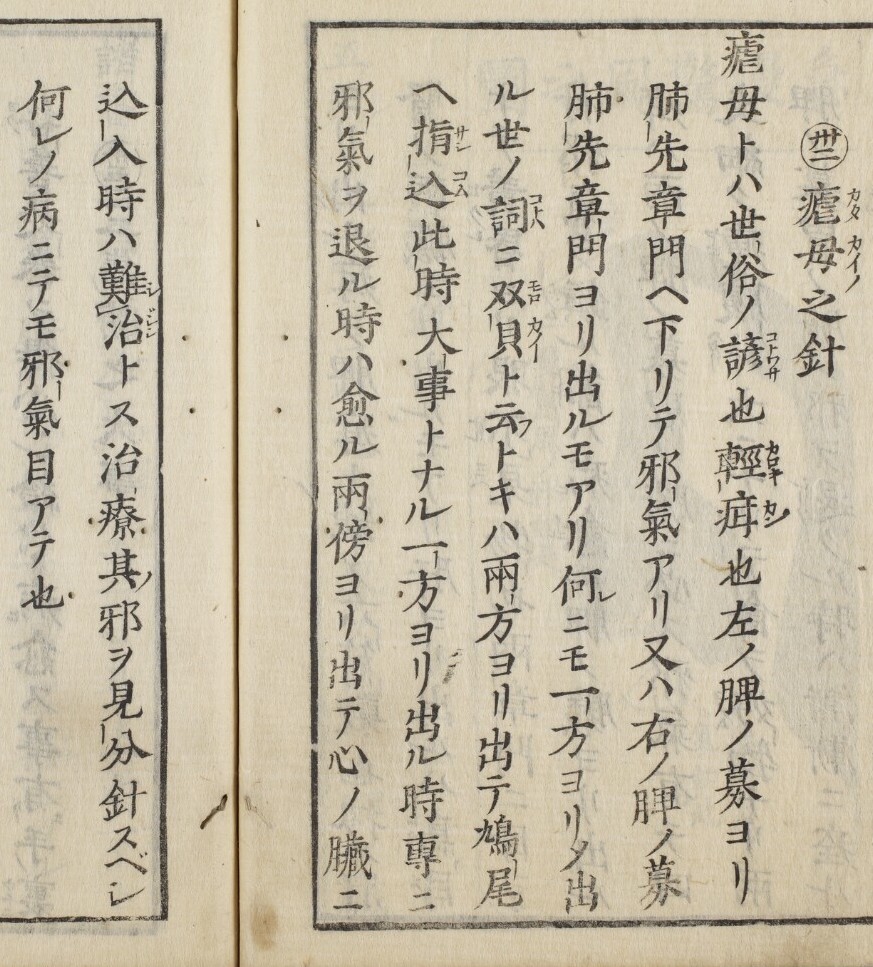 ㊷瘧母之針
瘧母トハ世俗ノ諺也輕痺也左ノ脾ノ募ヨリ
肺先章門ヘ下リテ邪氣アリ又ハ右ノ脾ノ募
肺先章門ヨリ出ルモアリ何レニモ一方ヨリ出
ル世ノ詞ニ双貝ト云トキハ兩方ヨリ出テ鳩尾
ヘ指込此時大事トナル一方ヨリ出ル時専ニ
邪氣ヲ退ル時ハ愈ル兩傍ヨリ出テ心ノ臓ニ
込入時ハ難治トス治療其邪ヲ見分針スベシ
何レノ病ニテモ邪氣目アテ也